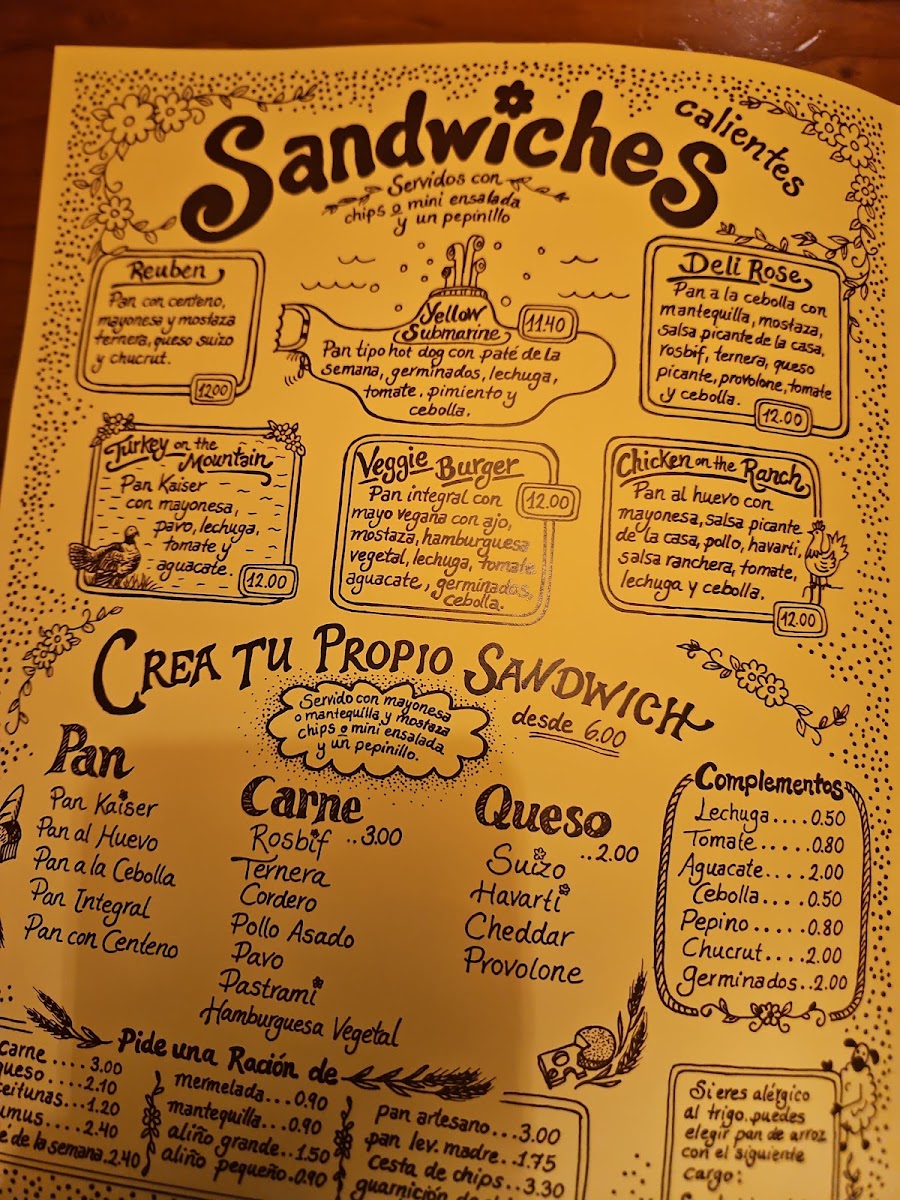 Sandwiches
calientes
Servidos con
chips o mini ensalada
y un pepinillo
Reuben
Pan con centeno,
mayonesa y mostaza
ternera, queso suizo
y chucrut.
12.00
Yellow
Submarine
11.40
Pan tipo hot dog con paté de la
semana, germinados, lechuga,
tomate, pimiento y
cebolla.
Deli Rose
Pan a la cebolla con
mantequilla, mostaza,
salsa picante de la casa,
rosbif, ternera, queso
picante, provolone, tomate
y cebolla.
12.00
Turkey on the
Mountain
Pan Kaiser
con mayonesa,
pavo, lechuga,
tomate y
aguacate.
12.00
Veggie Burger
12.00
Pan integral con
mayo vegana con ajo,
mostaza, hamburguesa
vegetal, lechuga, tomate
aguacate, germinados,
cebolla.
Chicken on the Ranch
Pan al huevo con
mayonesa, salsa picante
de la casa, pollo, havarti,
salsa ranchera, tomate,
lechuga y cebolla.
12.00
CREA TU PROPIO SANDWICH
desde 6.00
Servido con mayonesa
o mantequilla y mostaza
chips o mini ensalada
y un pepinillo.
Pan
Pan Kaiser
Pan al Huevo
Pan a la Cebolla
Pan Integral
Pan con Centeno
Carne
Rosbif ..3.00
Ternera
Cordero
Pollo Asado
Pavo
Pastrami
Hamburguesa Vegetal
Queso
Suizo ..2.00
Havarti
Cheddar
Provolone
Complementos
Lechuga....0.50
Tomate.....0.80
Aguacate...2.00
Cebolla....0.50
Pepino.....0.80
Chucrut....2.00
germinados..2.00
Pide una Ración de
carne ....3.00
queso ....2.10
...1.20
...2.40
de la semana.2.40
mermelada...0.90
mantequilla...0.90
aliño grande..1.50
aliño pequeño.0.90
pan artesano...3.00
pan lev. madre..1.75
cesta de chips..3.30
guarnición
Si eres alérgico
al trigo, puedes
elegir pan de arroz
con el siguiente
cargo: